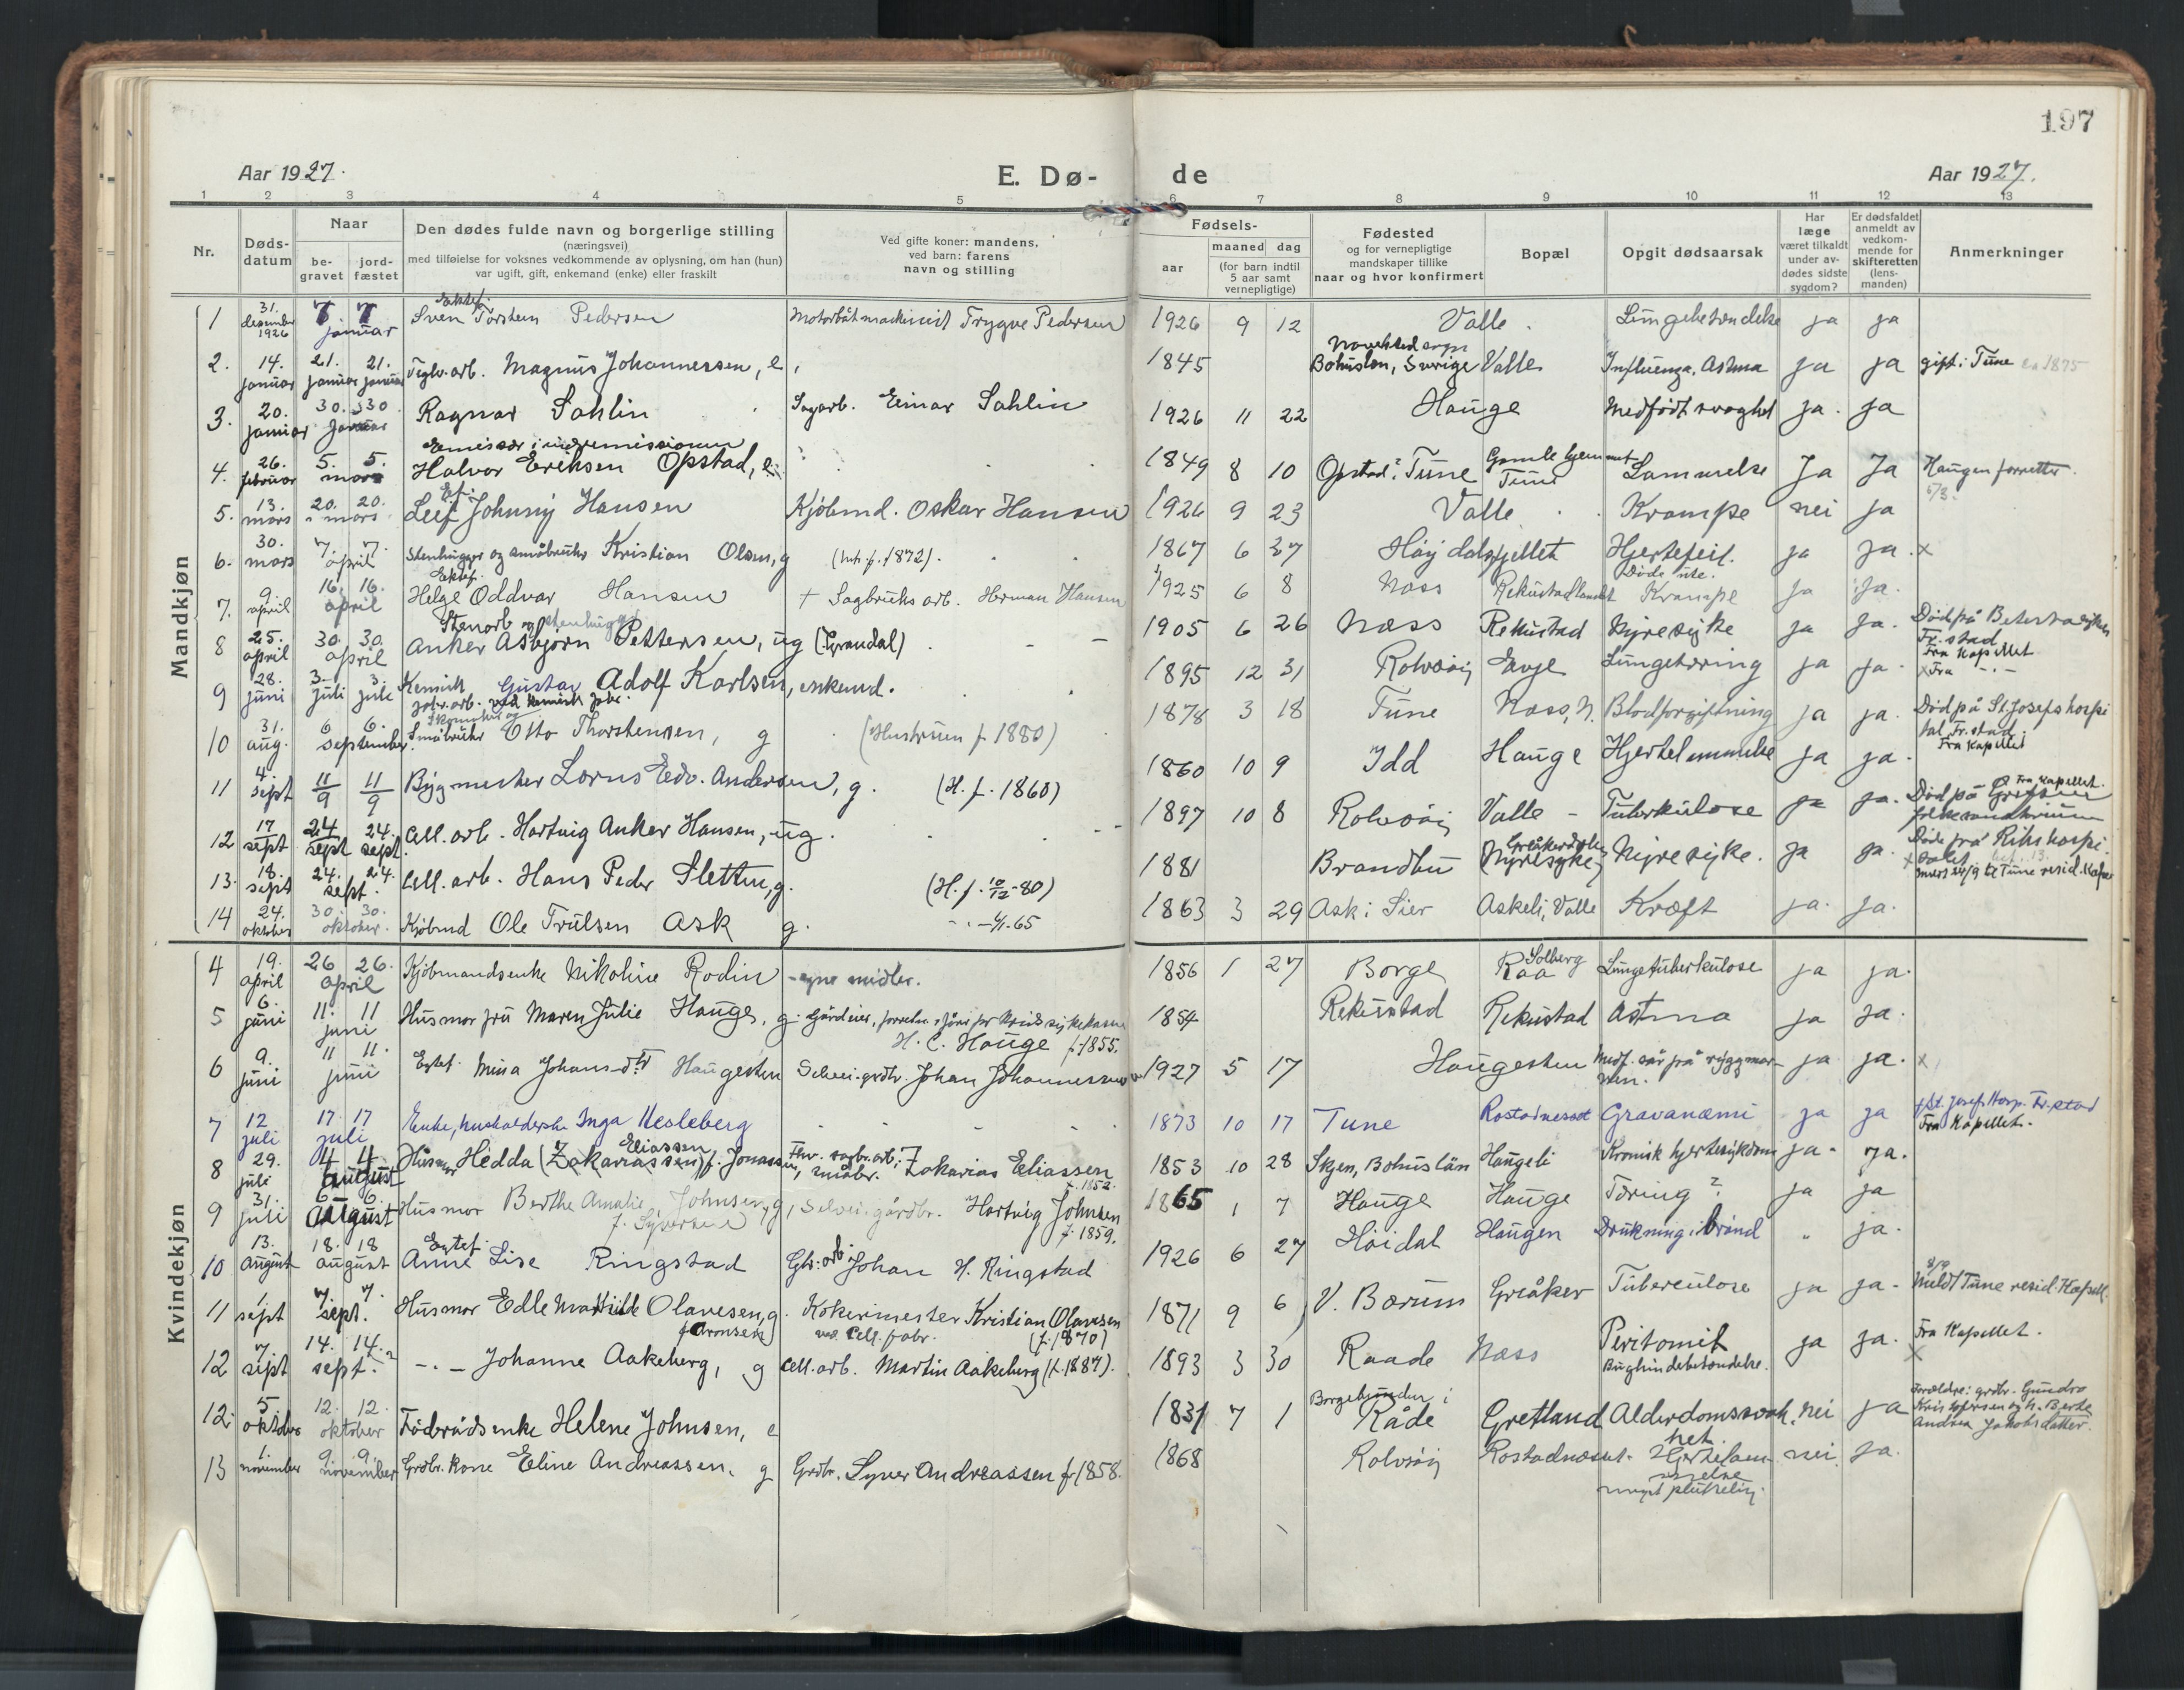 197
Aar 1927.
E. Dø-
de
Aar 1927.
1 2 3 4 5 6 7 8 9 10 11 12 13
Nr.
Døds-
datum
Naar
be-
gravet
jord-
fæstet
Den dødes fulde navn og borgerlige stilling
(næringsvei)
med tilføielse for voksnes vedkommende av oplysning, om han (hun)
var ugift, gift, enkemand (enke) eller fraskilt
Ved gifte koner: mandens,
ved barn: farens
navn og stilling
Fødsels-
aar
maaned dag
(for barn indtil
5 aar samt
vernepligtige)
Fødested
og for vernepligtige
mandskaper tillike
naar og hvor konfirmert
Bopæl
Opgit dødsaarsak
Har
læge
været tilkaldt
under av-
dødes sidste
sygdom?
Er dødsfaldet
anmeldt av
vedkom-
mende for
skifteretten
(lens-
manden)
Anmerkninger
Mandkjøn
1 31. desember 1926 7. 7 januar Ektef. Sven Torstein Pedersen Motorbåtmaskinist Trygve Pedersen 1926 9 12 Valle Lungebetændelse ja ja
2. 14. januar 21. januar 21. januar Teglv.arb. Magnus Johannessen, e. 1845 Bohuslen, Sverige Valle Influenza, Astma ja ja gift i Tune ca 1875
3. 20. januar 30. 30. januar Ragnar Sahlin Sagarb. Einar Sahlin 1926 11 22 Hauge Medfødt svaghet ja. ja
4. 26. februar 5. 5. mars Emissær i indremissionen Halvor Eriksen Opstad, e. 1849 8 10 Opstad i Tune Gamlehjemmet Tune Lammelse Ja Ja Haugen forretter 5/3.
5. 13. mars 20. 20. mars Ekf. Leif Johnny Hansen Kjøbmd. Oskar Hansen 1926 9 23 Valle Krampe nei ja
6. 30. mars 7. 7. april Stenhugger og småbruker Kristian Olsen, g (h. f. 1872). 1867 6 27 Høydalsfjellet Hjertefeil. Døde ute. ja ja. x
7. 9. april 16. 16. april Ektef. Helge Oddvar Hansen + Sagbruks arb. Herman Hansen 1925 6 8 Næss Rekustadlandet Krampe ja ja.
8 25. april 30. 30. april Stenarb og stenhugger Anker Asbjørn Pettersen, ug (Grandal) 1905 6 26 Næss Rekustad Nyresyke ja ja. Død på Fr.stad Fra Kapellet
9 28. juni 3. juli 3. juli Kemisk Gustav Adolf Karlsen, enkemd. 1895 12 31 Rolvsøy Evje Lungetæring ja ja x Fra -"-
10 31. aug. 6 6. september Skomaker og Småbruker Otto Thorstensen, g (Hustruen f 1880) 1878 3 18 Tune Næss, N. Blodforgiftning ja ja. Død på St. Josefs hospital Fr.stad. Fra Kapellet
11 4 sept 11/9 11/9 Bygmester Lorns Edv. Andersen, g. (H. f. 1860) 1860 10 9 Idd Hauge Hjertelammelse ja ja.
12 17 sept 24 sept 24. sept. Cell. arb. Hartvig Anker Hansen, ug. 1897 10 8 Rolvsøy Valle Tuberkulose ja ja. Fra Kapellet. Død på
13. 18. sept 24. 24. sept. Cell. arb. Hans Peder Sletten, g. (H. f. 10/12-80) 1881 Brandbu Nyresyke. ja ja. Døde på Rikshospitalet
14 24. oktober 30. 30. oktober. Kjøbmd Ole Trulsen Ask g. 1863 3 29 Ask i Lier Askeli, Valle Kræft ja. ja.
Kvindekjøn
4 19. april 26 26. april Kjøbmandsenke Nikoline Rodin - egne midler. 1856 1 27 Borge Solberg Raa Lungetuberkulose ja ja.
5 6. juni 11. 11 juni Husmor fru Maren Julie Hauge, g. H. C. Hauge f. 1855. 1854 Rekustad Rekustad Astma ja ja.
6 9. juni 11 11. juni Egtef. Mina Johans-dtr Haugesten Selvei.grdbr. Johan Johannessen 1927 5 17 Haugesten Medf. sår på ryggmarven. ja ja. x
7 12 juli 17. 17 juli Enke, husholderske Inga Hesleberg 1873 10 17 Tune Rostadnesset Gravanæmi ja ja + St. Josefs Hosp. Fr.stad Fra Kapellet.
8 29. juli 4 4 august Husmor Hedda (Zakariassen) Eliassen f. Jonassen Fhv. sagbr.arb., småbr. Zakarias Eliassen f. 1852. 1853 10 28 Skjen, Bohuslän Haugeli Kronisk hjertesykdom ja. ja.
9 31. juli 6 6. august Husmor Berthe Amalie Johnsen, g, f. Syversen Selvei. gårdbr. Hartvig Johnsen f. 1859. 1865 1 7 Hauge Hauge Tæring? ja ja
10 13. august 18. 18 august Egtef. Anne Lise Ringstad Gbr. arb. Johan H. Ringstad 1926 6 27 Høidal Haugen Drukning i brønd " ja.
11 1 sept 7. 7. sept. Husmor Edle Mathilde Olavesen, g. f. Aronsen Kokerimester Kristian Olavesen ved Cell. fabr. (f. 1870) 1871 9 6 V. Bærum Greåker Tuberculose ja ja. 8/9 Meldt Tune resid. Kapell.
12 7 sept 14. 14. sept. -"- Johanne Aakeberg, g Cell. arb. Martin Aakeberg (f. 1887). 1893 3 30 Raade Næss Peritonit Bughindebetændelse. ja ja. Fra Kapellet. x
12. 5. oktober 12. 12. oktober Føderådsenke Helene Johnsen, e 1831 7 1 Råde Gretland Alderdomssvakhet. nei ja Forældre: grdbr. Gundro Kristoffersen og h. Berte Andrea Jakobsdatter.
13 1. november 9. 9. november Grdbr. kone Eline Andreassen. g Grdbr. Syver Andreassen f. 1858. 1868 Rolvsøy Rostadneset. Hjertelammelse meget pludselig. nei ja.